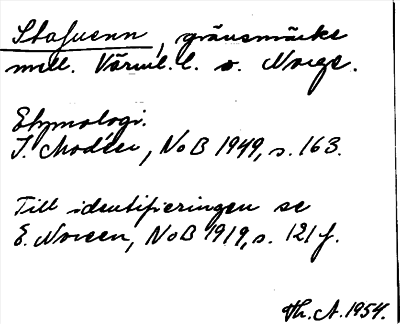 Stafuenn, gränsmärke
mell. Värml. l. o. Norge.
Etymologi.
I. Modéer, NoB 1949, s. 163.
Till identifieringen se
E. Noreen, NoB 1919, s. 121 f.
Th. A. 1954.